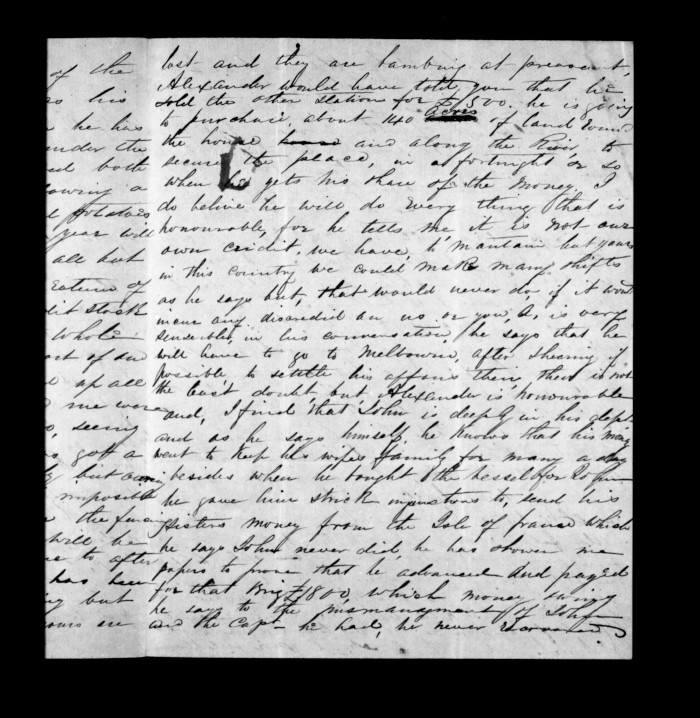 of the
his
he has
under the
both
owing a
Potatoes
year will
all but
Return of
stock
Whole
up all
me were
seeing
gott a
but
imposible
the
will be
to after
has been
but
yours are
lost and they are lambing at preasent,
Alexander would have told you that he
sold the other station for £1,500. he is going
to purchase, about 140 acres of land round
the house and along the River, to
secure the place, in a fortnight or so
when he gets his share of the money, I
do belive he will do every thing that is
honourable, for he tells me it is not our
own credit, we have to mantain but yours
in this country we could make many shifts
as he says but that would never do, if it
incur any discredid on us or you, A, is very
sensible, in his conversation, he says that he
will have to go to Melbourn, after shearing if
possible to settle his affairs then, there is not
the least doubt, but Alexander is honourable
and, I find that John is deeply in his
and as he says himself, he knows that his money
went to keep his wifes family for many a day
besides when he bought the vessel for
he gave him strick injunctions to, send his
Sisters money from the Isle of france which
he says John never did, he has shown me
papers to prove that he advanced and payed
for that Brig £1800, which money
he says to the mismanagment of John
and the Capt he had, he never